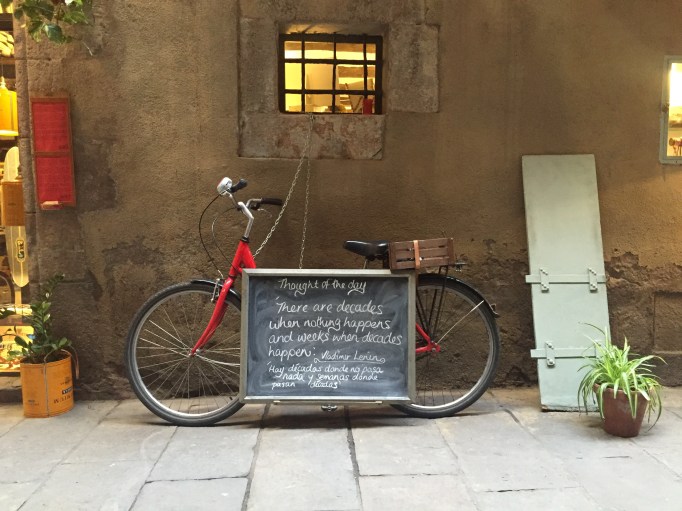 Thought of the day
"There are decades
when nothing happens
and weeks when decades
happen."
Vladimir Lenin
Hay décadas donde no pasa
nada y semanas donde
pasan décadas